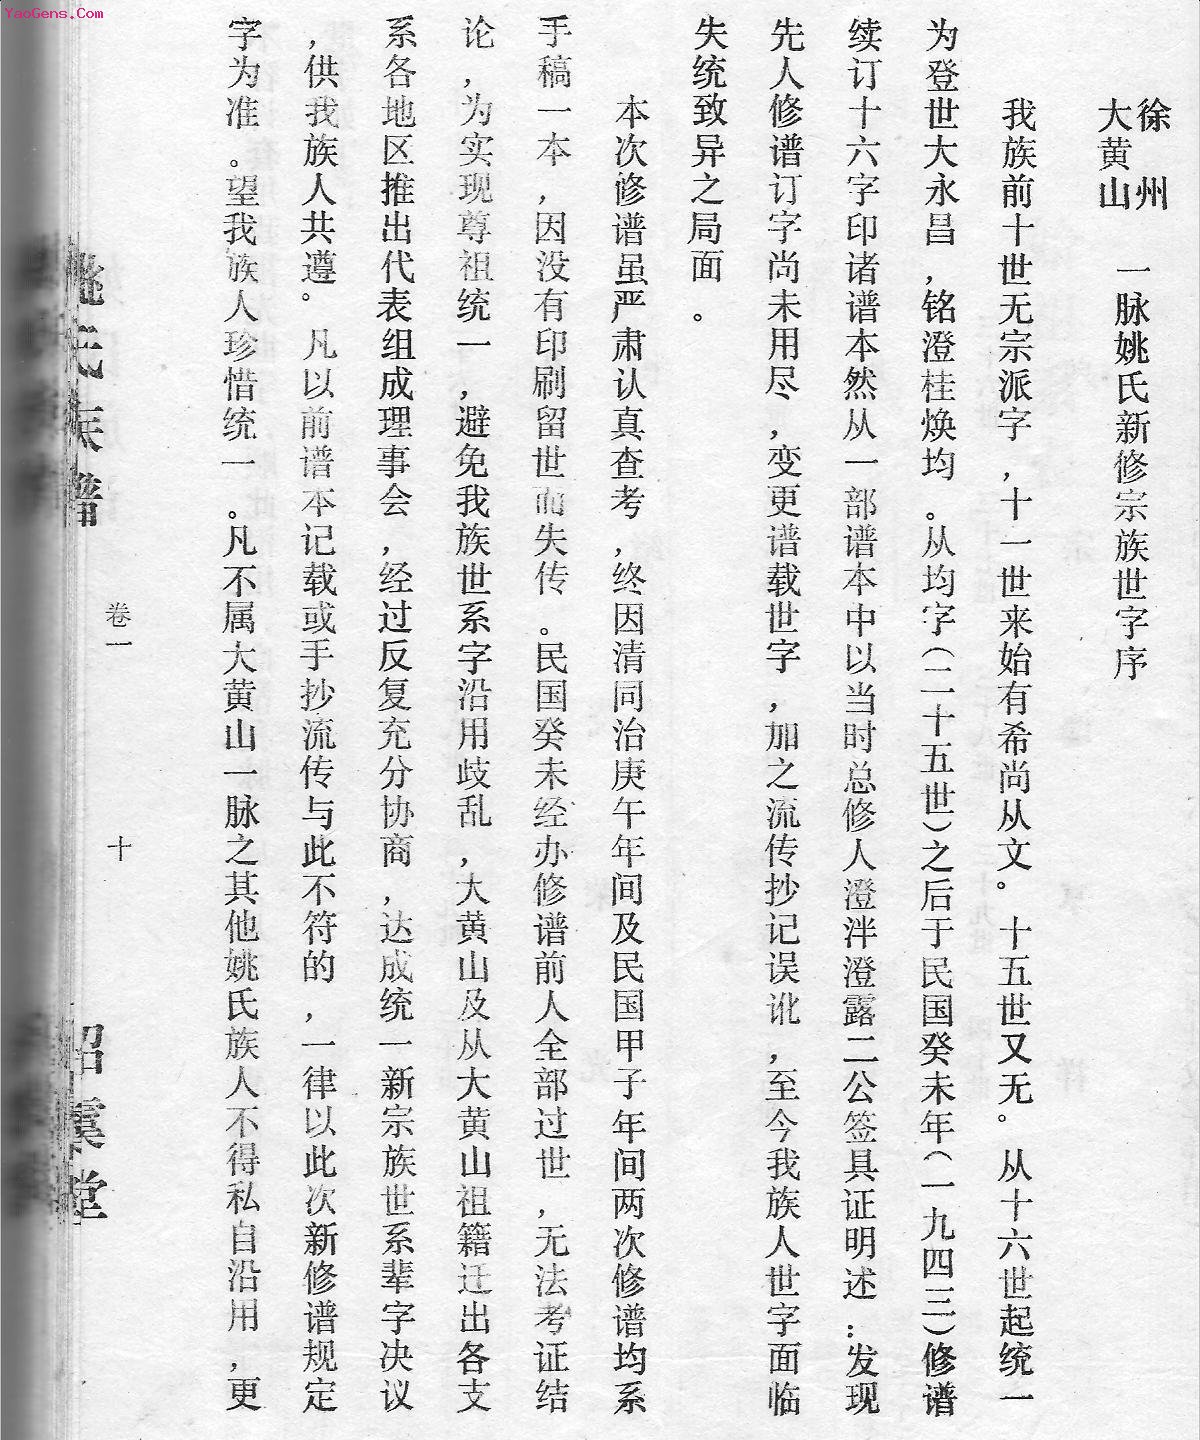 YaoGens.Com
徐州
大黄山
一脉姚氏新修宗族世字序
我族前十世无宗派字，十一世来始有希尚从文。十五世又无。从十六世起统一
为登世大永昌，铭澄桂焕均。从均字（二十五世）之后于民国癸未年（一九四三）修谱
续订十六字印诸谱本然从一部谱本中以当时总修人澄泮澄露二公签具证明述：发现
先人修谱订字尚未用尽，变更谱载世字，加之流传抄记误讹，至今我族人世字面临
失统致异之局面。
本次修谱虽严肃认真查考，终因清同治庚午年间及民国甲子年间两次修谱均系
手稿一本，因没有印刷留世而失传。民国癸未经办修谱前人全部过世，无法考证结
论，为实现尊祖统一，避免我族世系字沿用歧乱，大黄山及从大黄山祖籍迁出各支
系各地区推出代表组成理事会，经过反复充分协商，达成统一新宗族世系辈字决议
，供我族人共遵。凡以前谱本记载或手抄流传与此不符的，一律以此次新修谱规定
字为准。望我族人珍惜统一。凡不属大黄山一脉之其他姚氏族人不得私自沿用，更
姚氏族谱
卷一
十
昭寘堂